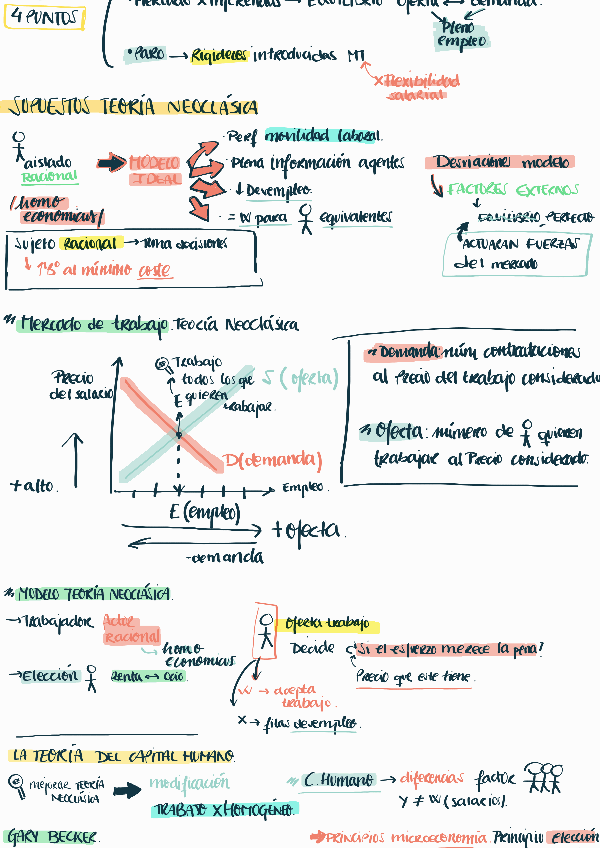 4 PUNTOS
Pleno
empleo
• Paro → Rigideces introducidas MT
x Flexibilidad
salarial
SUPUESTOS TEORÍA NEOCLÁSICA
aislado
Racional
/homo
economicus/
MODELO
IDEAL
• Perf movilidad laboral.
• Plena información agentes
• ↓ Desempleo.
• = W para equivalentes
Desviaciones modelo
↓ FACTORES EXTERNOS
↓
EQUILIBRIO PERFECTO
ACTUARAN FUERZAS
del mercado
Sujeto racional → toma decisiones
↓ ↑Bº al mínimo coste
Mercado de trabajo. Teoría Neoclásica
Precio
del salario
+ alto.
Trabajo
todos los que
E quieren
trabajar.
S (oferta)
D (demanda)
Empleo.
E (empleo)
+ oferta.
-demanda
Demanda: núm contrataciones
al Precio del trabajo considerado
Oferta: número de quieren
trabajar al Precio considerado.
MODELO TEORÍA NEOCLÁSICA.
→ Trabajador Actor
Racional
homo
economicus
→ Elección Renta ↔ Ocio.
Oferta trabajo
Decide ¿Si el esfuerzo merece la pena?
Precio que este tiene.
W → acepta
trabajo.
X → filas desempleo.
LA TEORÍA DEL CAPITAL HUMANO.
mejorar TEORÍA
NEOCLÁSICA
modificación
TRABAJO X HOMOGÉNEO.
C. Humano → diferencias factor
Y ≠ W (salarios).
GARY BECKER.
→ PRINCIPIOS MICROECONOMIA. Principio elección